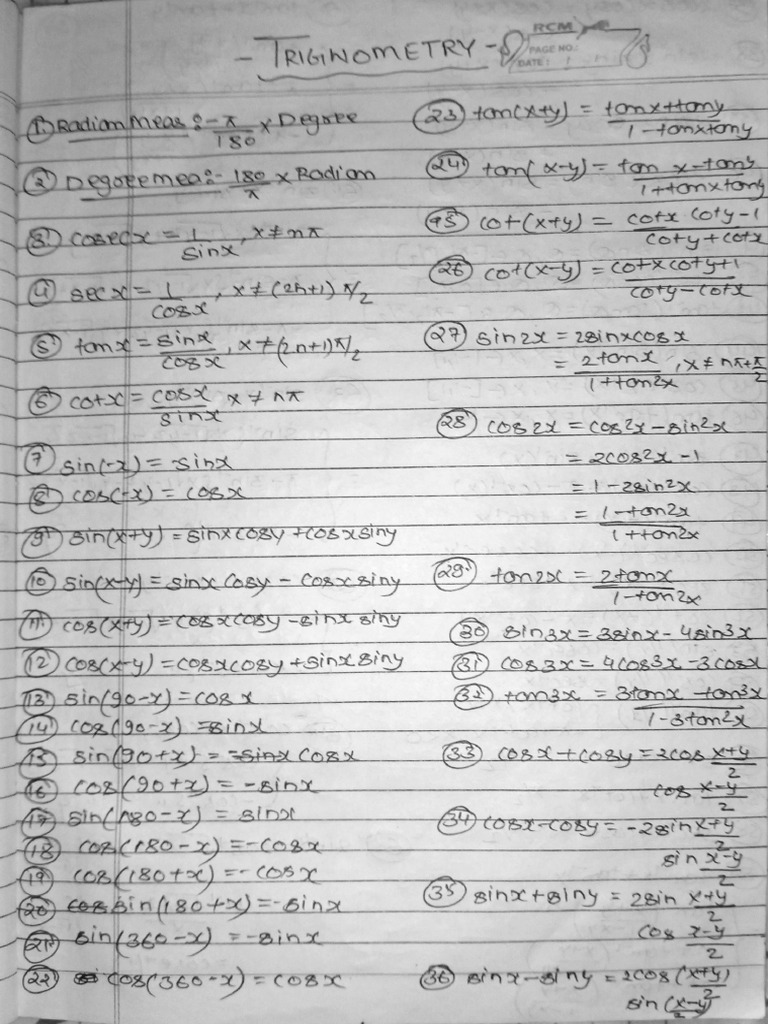 - TRIGINOMETRY -
RCM
PAGE NO.:
DATE:
① Radian Meas :- π/180 × Degree
② Degree mea:- 180/π × Radian
③ cosecx = 1/sinx, x≠nπ
④ secx = 1/cosx, x≠(2n+1)π/2
⑤ tanx = sinx/cosx, x≠(2n+1)π/2
⑥ cotx = cosx/sinx x≠nπ
⑦ sin(-x) = -sinx
⑧ cos(-x) = cosx
⑨ sin(x+y) = sinxcosy + cosxsiny
⑩ sin(x-y) = sinx cosy - cosxsiny
⑪ cos(x+y) = cosxcosy - sinx siny
⑫ cos(x-y) = cosxcosy + sinx siny
⑬ sin(90-x) = cosx
⑭ cos(90-x) = sinx
⑮ sin(90+x) = -sinx cosx
⑯ cos(90+x) = -sinx
⑰ sin(180-x) = sinx
⑱ cos(180-x) = -cosx
⑲ cos(180+x) = -cosx
⑳ cos sin(180+x) = -sinx
㉑ sin(360-x) = -sinx
㉒ cos(360-x) = cosx
㉓ tan(x+y) = tanx+tany/1-tanxtany
㉔ tan(x-y) = tan x-tany/1+tanxtany
95 cot(x+y) = cotx coty-1/coty+cotx
㉖ cot(x-y) = cotxcoty+1/coty-cotx
㉗ sin2x = 2sinxcosx
= 2tanx/1+tan2x, x≠nπ+π/2
㉘ cos2x = cos²x-sin²x
= 2cos²x-1
= 1-2sin²x
= 1-tan2x/1+tan2x
㉙ tan2x = 2tanx/1-tan2x
㉚ sin3x = 3sinx-4sin3x
㉛ cos3x = 4cos3x-3cosx
㉜ tan3x = 3tanx-tan3x/1-3tan²x
㉝ cosx+cosy = 2cos x+y/2
cos x-y/2
㉞ cosx-cosy = -2sin x+y/2
sin x-y/2
㉟ sinx+siny = 2sin x+y/2
cos x-y/2
㊱ sinx-siny = 2cos (x+y)/2
sin (x-y)/2